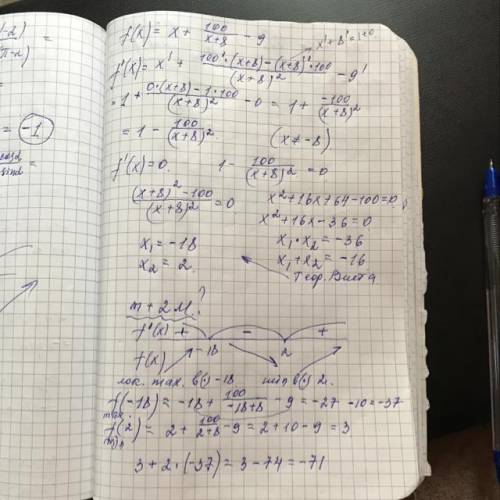 -2)
π-2)
=
= -1
cosα
sinα =
f(x) = x + 100/(x+8) - 9
x' + 8' = 1+0
f'(x) = x' + (100'·(x+8) - (x+8)'·100)/(x+8)² - 9'
= 1 + (0·(x+8) - 1·100)/(x+8)² - 0 = 1 + -100/(x+8)²
= 1 - 100/(x+8)² (x ≠ -8)
f'(x) = 0. 1 - 100/(x+8)² = 0
((x+8)² - 100)/(x+8)² = 0 x² + 16x + 64 - 100 = 0
x² + 16x - 36 = 0
x₁ = -18 x₁·x₂ = -36
x₂ = 2. x₁ + x₂ = -16
Теор. Виета
m + 2M ?
f'(x) + - +
f(x) -18 2
лок. max. в(·) -18 min в(·) 2.
f(-18) = -18 + 100/(-18+8) - 9 = -27 -10 = -37
max
f(2) = 2 + 100/(2+8) - 9 = 2 + 10 - 9 = 3
min
3 + 2·(-37) = 3 - 74 = -71